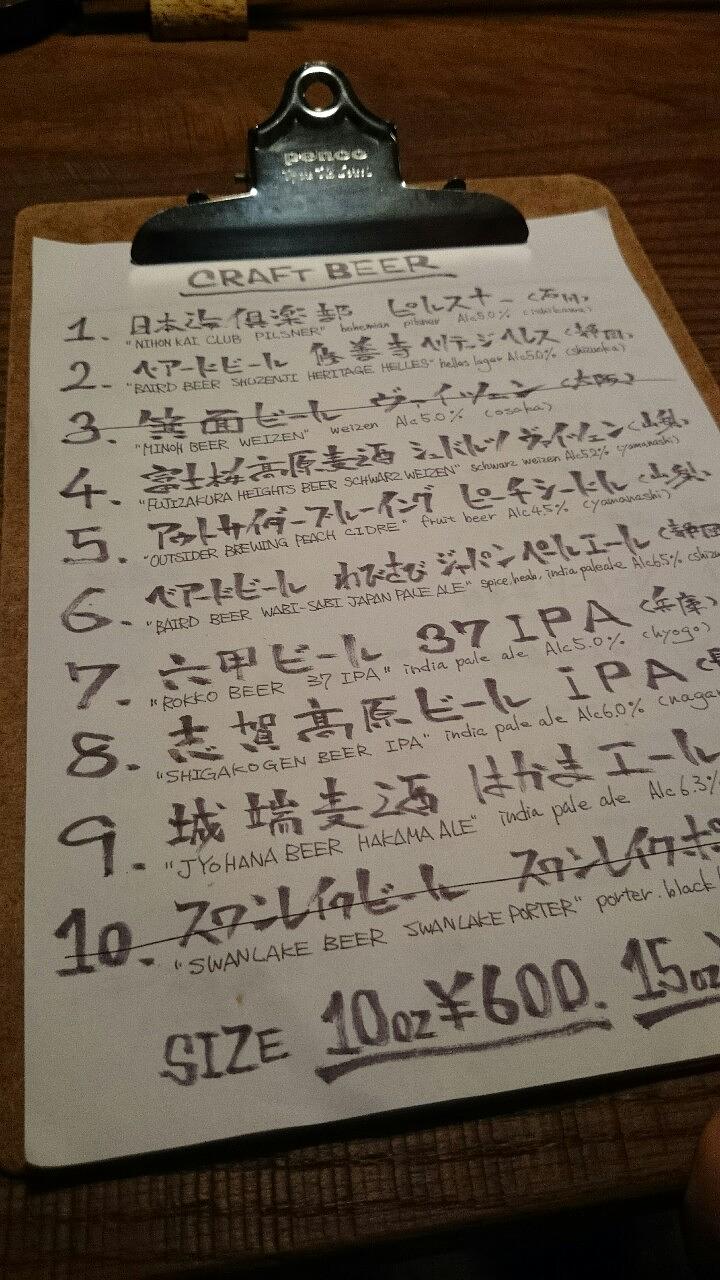 penco
CRAFT BEER
1. 日本海倶楽部 ピルスナー (石川)
"NIHON KAI CLUB PILSNER" bohemian pilsner Alc5.0% (ishikawa)
2. ベアードビール 修善寺ヘリテッジヘレス (静岡)
"BAIRD BEER SHUZENJI HERITAGE HELLES" helles lager Alc5.0% (shizuoka)
3. 箕面ビール ヴァイツェン (大阪)
"MINOH BEER WEIZEN" weizen Alc5.0% (osaka)
4. 富士桜高原麦酒 シュバルツ ヴァイツェン (山梨)
"FUJIZAKURA HEIGHTS BEER SCHWARZ WEIZEN" schwarz weizen Alc5.2% (yamanashi)
5. アウトサイダーブルーイング ピーチシードル (山梨)
"OUTSIDER BREWING PEACH CIDRE" fruit beer Alc4.5% (yamanashi)
6. ベアードビール わびさび ジャパンペールエール (静岡
"BAIRD BEER WABI-SABI JAPAN PALE ALE" spice,heab, india paleale Alc6.5% (shizu
7. 六甲ビール 37 IPA (兵庫)
"ROKKO BEER 37 IPA" india pale ale Alc5.0% (hyogo)
8. 志賀高原ビール IPA (長
"SHIGAKOGEN BEER IPA" india pale ale Alc6.0% (naga
9. 城端麦酒 はかまエール
"JYOHANA BEER HAKAMA ALE" india pale ale Alc6.3%
10. スワンレイクビール スワンレイクポ
"SWANLAKE BEER SWANLAKE PORTER" porter.black
SIZE 10oz¥600. 15oz